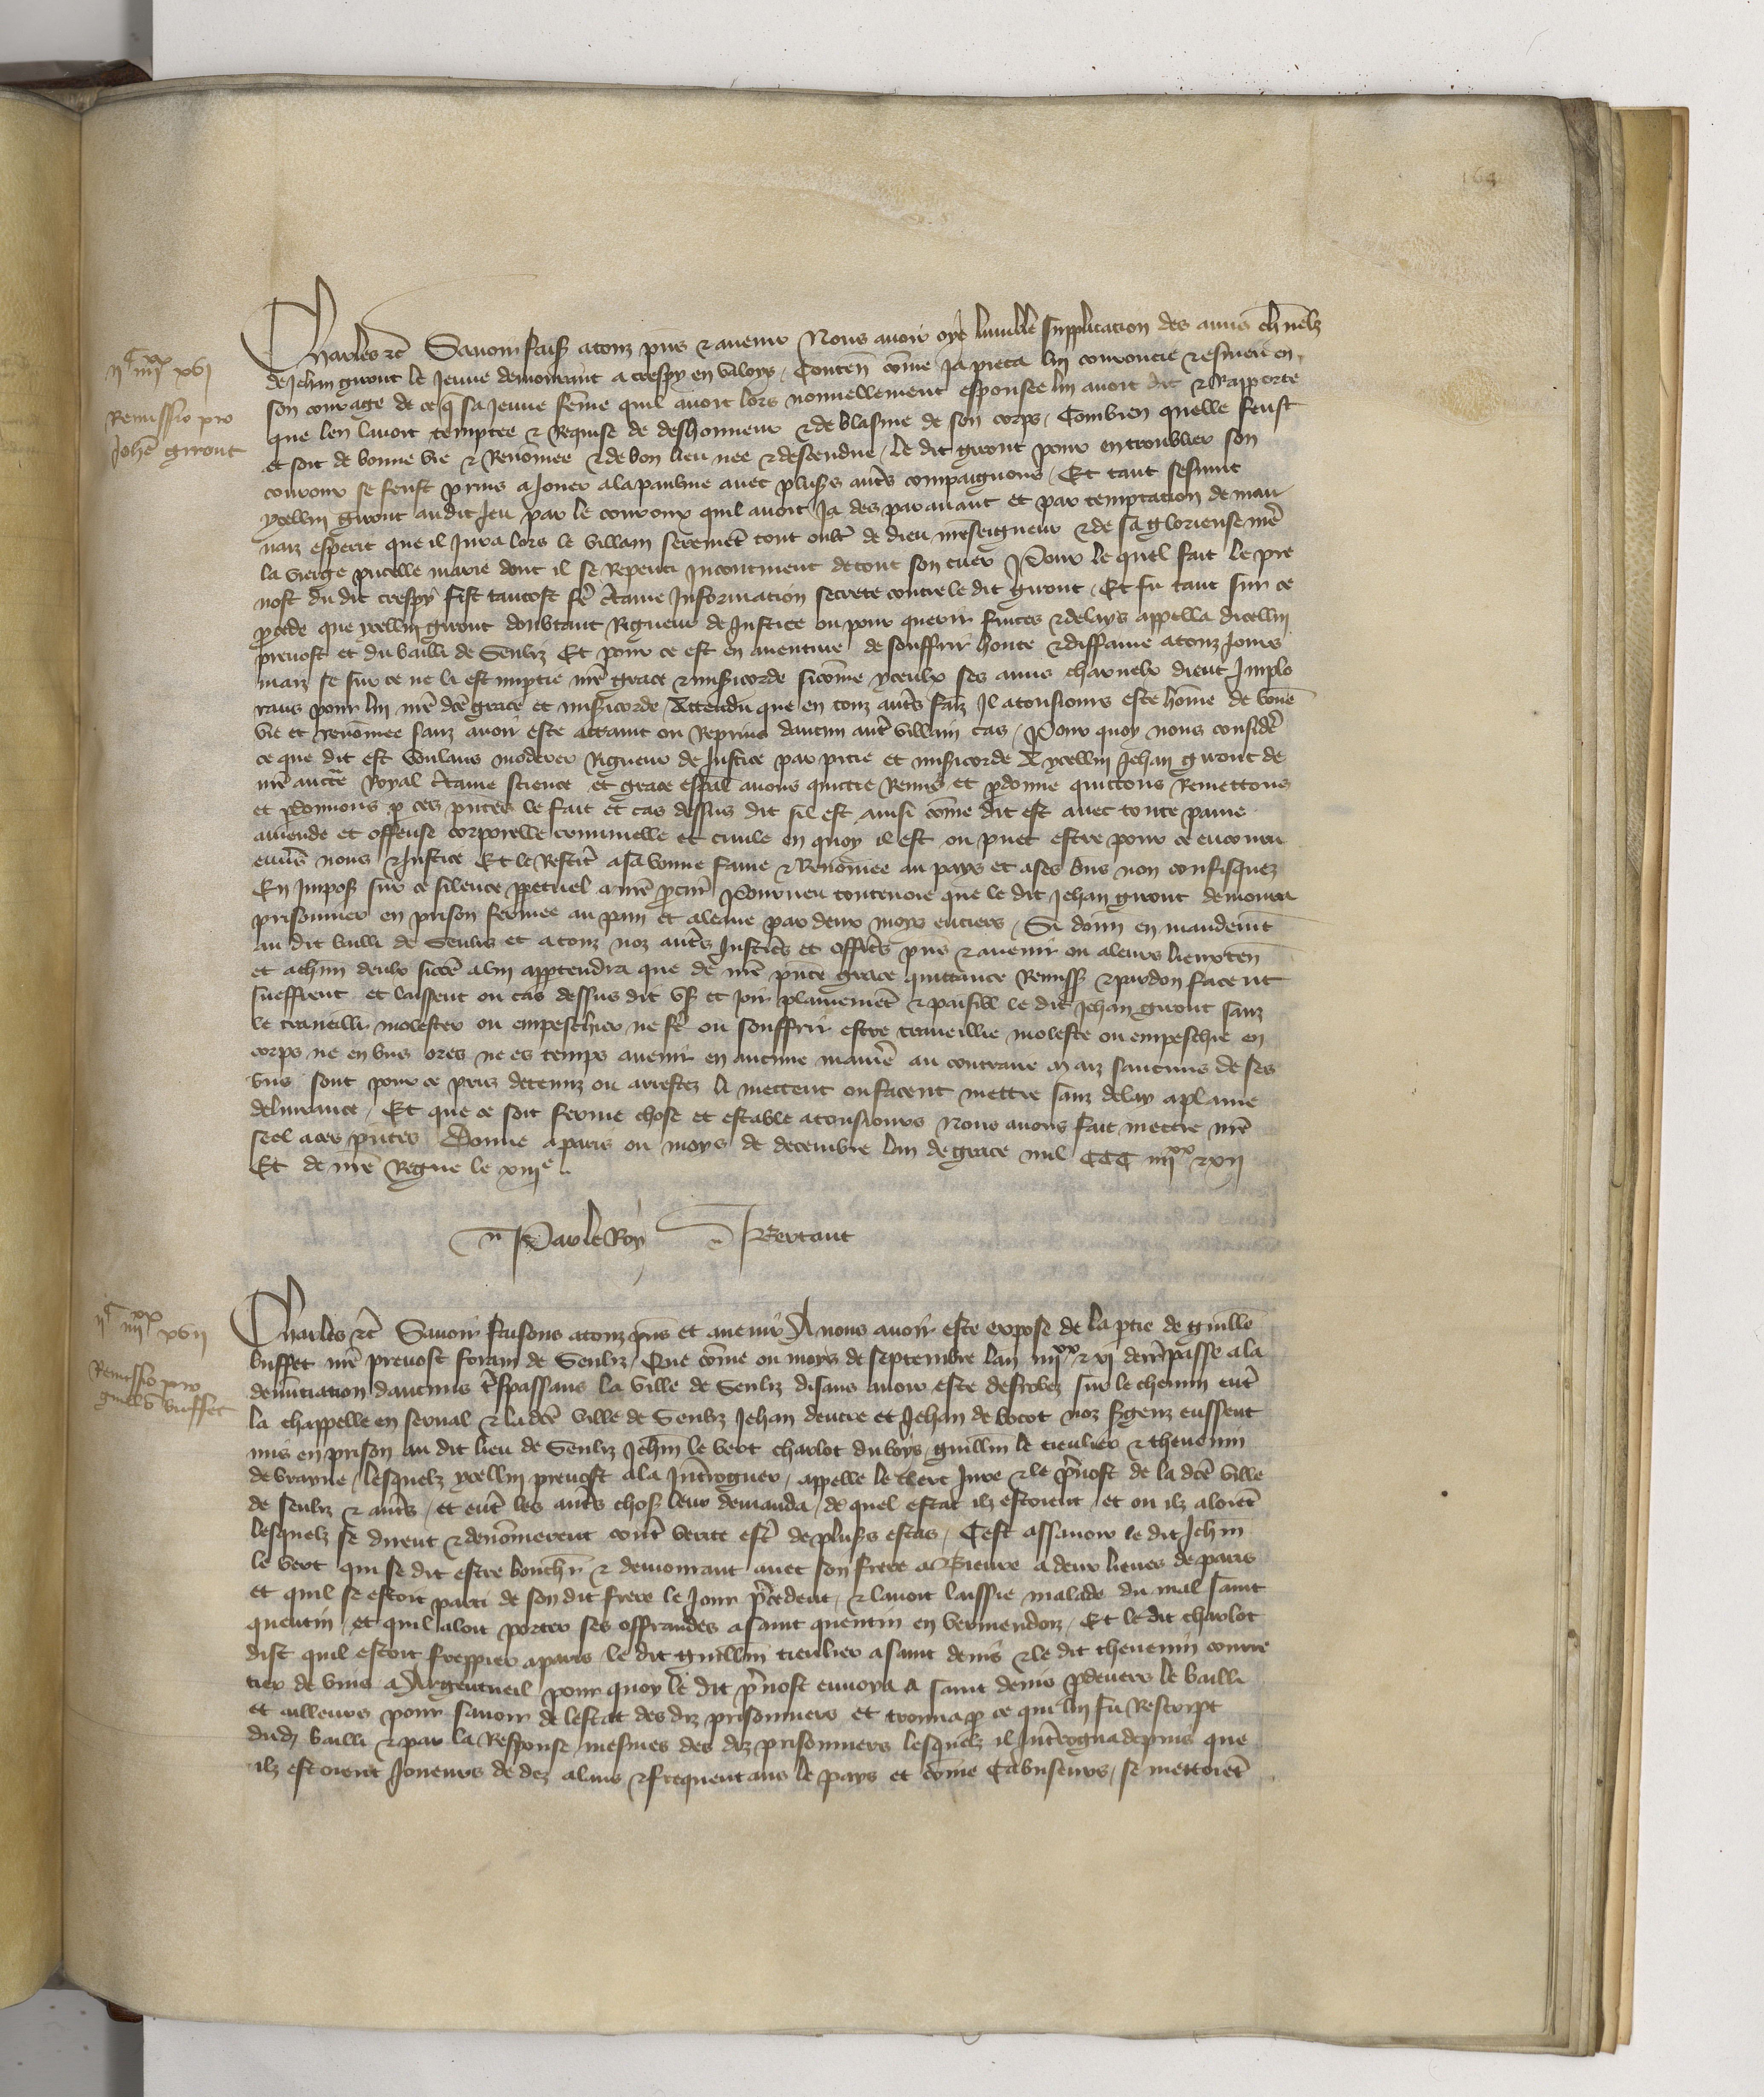 164
Charles etc Savoir faiss a touz pns et avenir Nous avoir oye lumble supplication des amis charnelz
IIc IIIIxx XVI
de Jehan giront le Jeune demourant a crespy en valoys / Contenn come Ja pieca lui courroucie et esmeu en
Remissio pro
Johe giront
son courage de ce q sa Jeune feme quil avoit lors nouvellement espousee lui avoit dit et Rapporte
que len lavoit temptee et Requise de deshonneur et de blasme de son corps / Combien quelle feust
et soit de bonne vie et Renomee et de bon lieu nee et descendue / le dit giront pour entroublier son
courroux se feust prins a Jouer a la paulme avec plus autres compaignons / Et tant sesmut
ycellui giront audit Jeu par le courroux quil avoit Ja des paravant et par temptation de mau
vaiz esperit que il Jura lors le villain serement tout oult de dieu nreseigneur et de sa glorieuse mere
la vierge pucelle marie dont il se Repenti Incontinent de tout son cuer Pour le quel fait le pre
vost du dit crespy fist tantost fe ctaine Information secrete contre le dit giront / Et fu tant sur ce
pcede que ycellui giront doubtant Rigueur de Justice ou pour querir fuites et delays appella dicellui
prevost et du bailli de Senliz Et pour ce est en aventure de souffrir honte et diffame a touz Jours
maiz se sur ce ne li est impartie nre grace et misicorde sicome yceulx ses amis charnelx dient Implo
rans pour lui nre dce grace et misicorde / Attendu que en touz auts faiz Il a tousiours este home de bone
vie et renomee sanz avoir este attaint ou Reprins daucun aut villain cas / Pour quoy nous consider
ce que dit est voulans moderer Rigueur de Justice par pitie et misicorde A ycellui Jehan giront de
nre aucte Royal ctaine science et grace espal avons quictie Remis et pdonne quictons Remettons
et pdonnons p ces pntes le fait et cas dessus dit sil est ainsi come dit est avec toute paine
amende et offense corporelle criminelle et civile en quoy il est ou puet estre pour ce encouru
envs nous et Justice Et le Restit a sa bonne fame et Renomee au pays et a ses bns non confisquez
En Impos sur ce silence ppetuel a nre pcur Pourveu toutevoie que le dit Jehan giront demourra
prisonnier en prison fermee au pain et a leaue par deux moys entiers / Si donn en mandemt
au dit bailli de Senliz et a touz noz auts Justics et officrs pns et avenir ou a leurs lieuxten
et a chun deulx sicoe a lui apptendra que de nre pnte grace quittance Remiss et pardon facent
sueffrent et laissent ou cas dessus dit us et Joir plainemet et paisibl le dit Jehan giront sanz
le traveillir molester ou empeschier ne fe ou souffrir estre traveillie moleste ou empeschie en
corps ne en bns ores ne es temps avenir en aucune maniee au contraire maiz saucuns de ses
bns sont pour ce pris detenuz ou arrestez li mettent ou facent mettre sanz delay a plaine
delivrance / Et que ce soit ferme chose et estable a tousiours Nous avons fait mettre nre
seel a ces pntes Donne a paris ou moys de decembre lan de grace mil CCC IIIIxx et XII
Et de nre Regne le xiiie
Par le Roy Bertaut
Charles etc Savoir faisons a touz pns et avenir A nous avoir este expose de la ptie de guille
IIc IIIIxx XVII
buffet nre prevost forain de Senliz / Que come ou moys de septembre lan IIIIxx et XI derrpasse a la
Remissio pro
guillo buffet
denunciation daucuns tspassans la ville de Senliz disans avoir este desrobez sur le chemin entre
la chappelle en serval et la dce ville de Senliz Jehan deutre et Jehan de bocot noz sgenz eussent
mis en prison au dit lieu de Senliz Jehin le vert charlot du boys guillin le tieulier et thevenin
de brayne / lesquelz ycellui prevost a la Introguer / appelle le clerc Jure et le pvost de la dce ville
de senliz et auts / et entre les auts chos leur demanda / de quel estat ilz estoient / et ou ilz aloiet
lesquelz se dirent et denomerent cont verite est de pluss estas / Cest assavoir le dit Jehin
le vert qui se dit estre bouchr et demourant avec son frere a Bievre a deux lieues de paris
et quil se estoit parti de son dit frere le Jour pcedent / et lavoit laissie malade du mal saint
quentin et quil aloit porter ses offrandes a saint quentin en vermendoiz / Et le dit charlot
dist quil estoit freppier a paris le dit guillin tieulier a saint denis et le dit thevenin courre
tier de vins a Argentueil pour quoy le dit pvost envoya a saint denis pdevers le bailli
et ailleurs pour savoir de lestat des diz prisonniers et trouva p ce qui lui fu Rescript
dud bailli et par la Response mesmes des diz prisonniers lesquelz il Introgua depuis que
ilz estoient Joueurs de dez alans et frequentans le pays et come Cabuseurs / se mettoiet